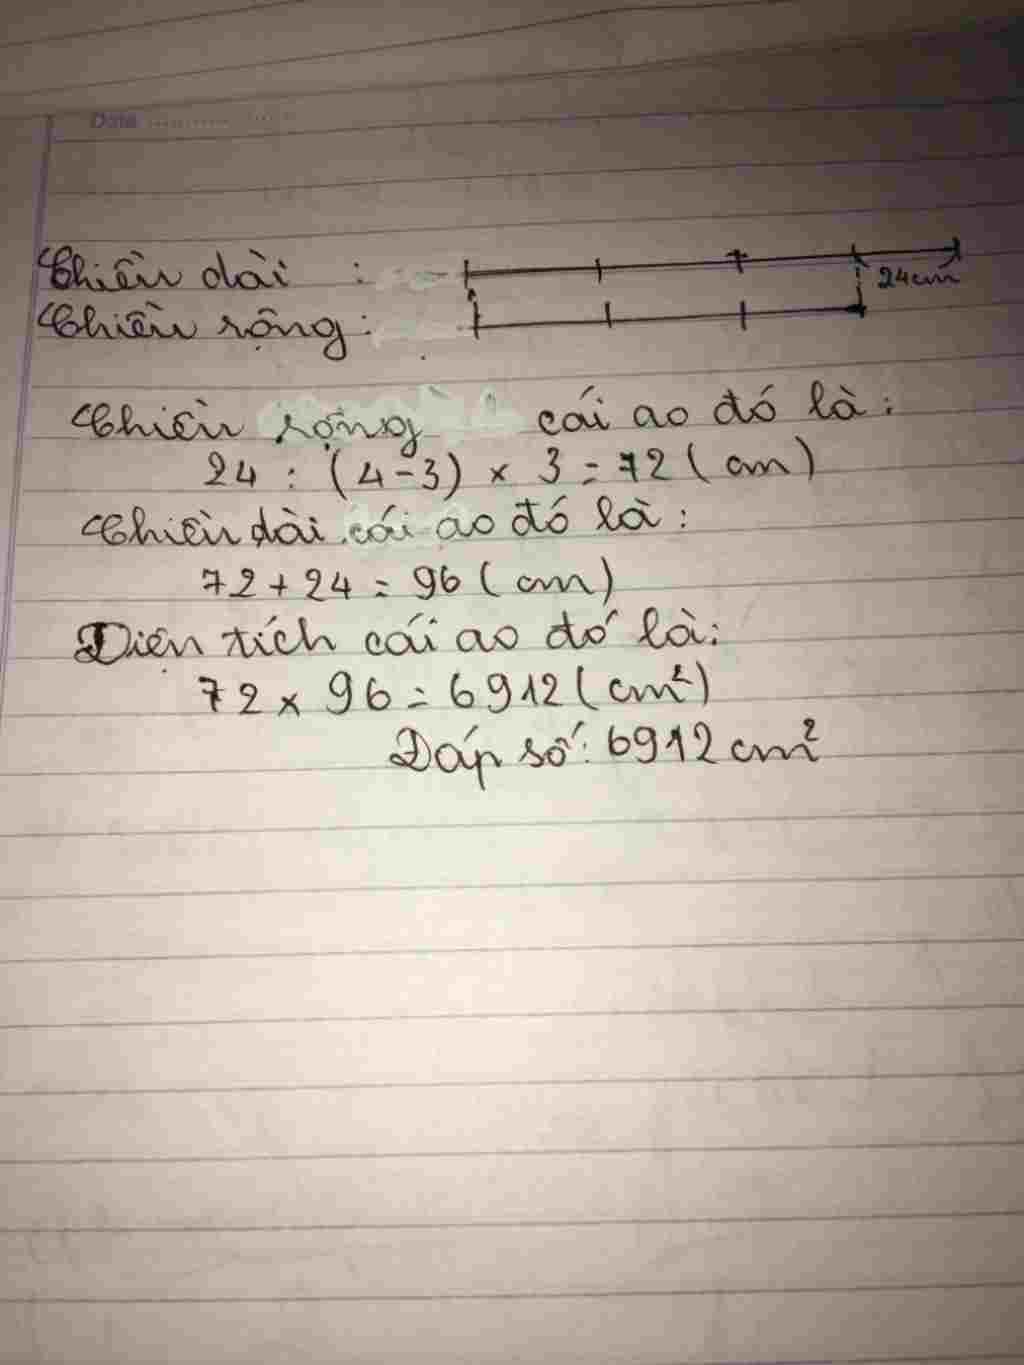 Date
Chiều dài :
24cm
Chiều rộng:
Chiều rộng cái ao đó là:
24 : (4-3) × 3 = 72 (cm)
Chiều dài cái ao đó là:
72 + 24 = 96 (cm)
Diện tích cái ao đó là:
72 × 96 = 6912 (cm²)
Đáp số: 6912 cm²